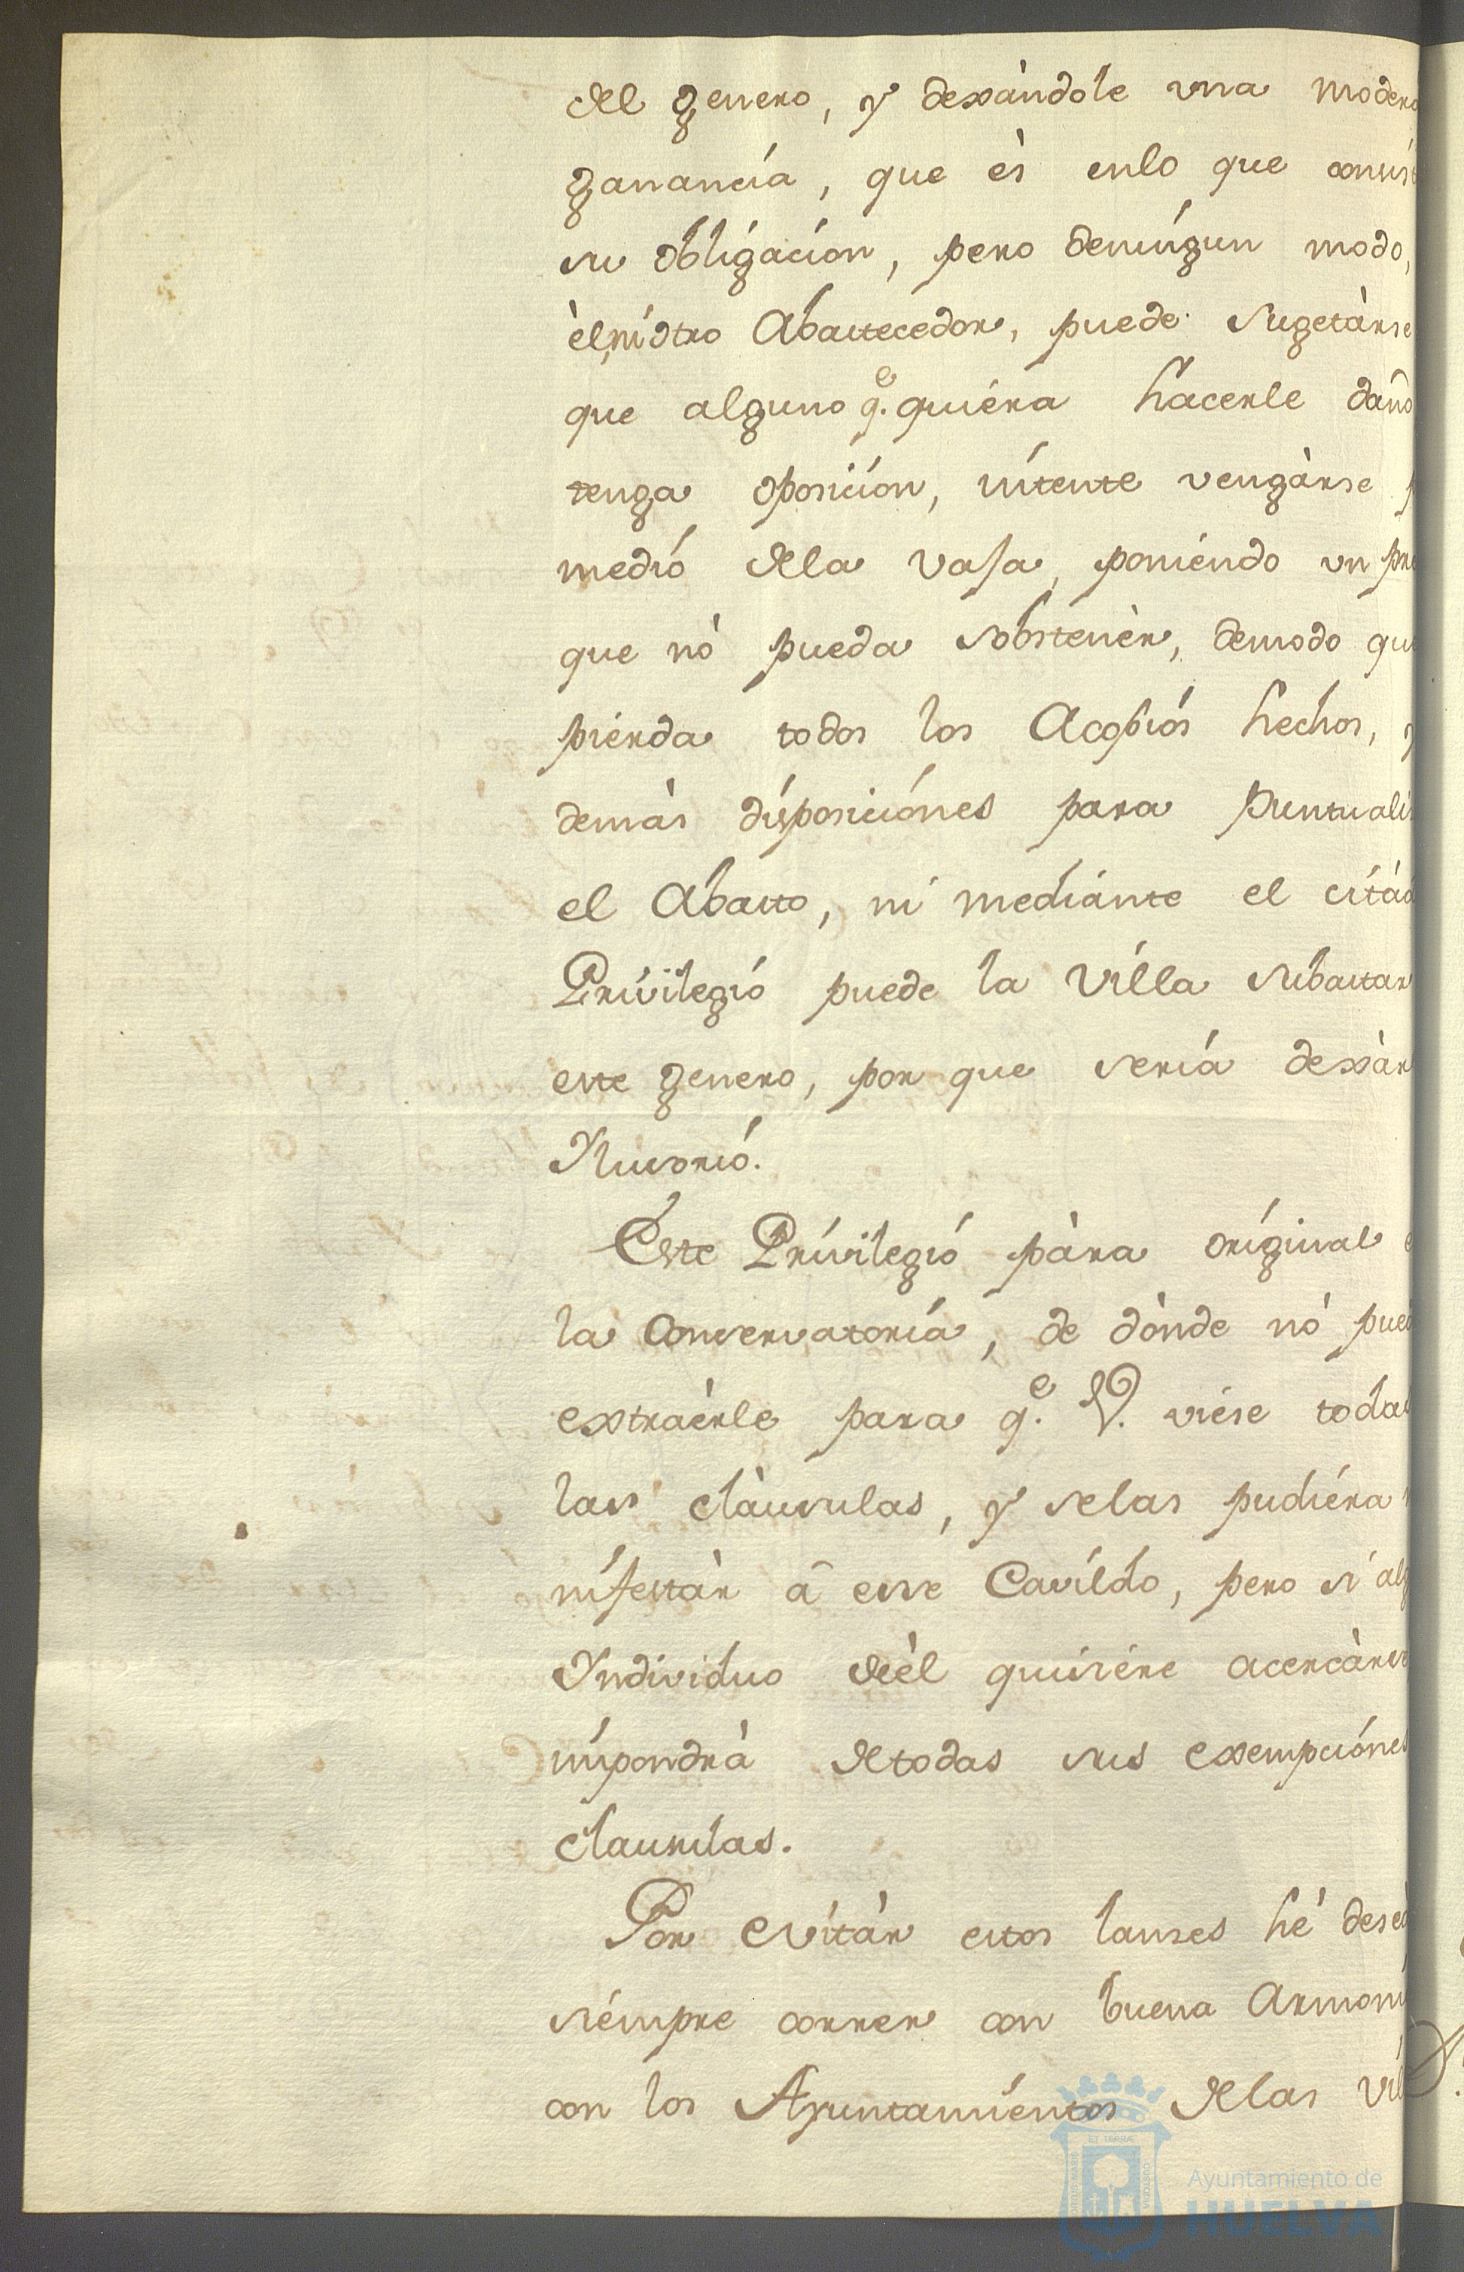 del genero, y dexàndole una modera
ganancía, que ès enlo que consíst
su obligacíon, pero deníngun modo,
èl, ni otro Abastecedor, puede sugetàrse
que alguno q.e quiéra hacerle daño
tenga oposicíon, íntente vengàrse p
medió dela vaja, poniéndo un pre
que nò pueda sobstenèr, demodo que
piérda todos los Acopiós hechos, y
demàs dísposiciónes para puntualiz
el Abasto, ni mediánte el cítàd
Privilegió puede la Villa subastar
este genero, por que sería dexàr
Ilusorió.
Este Privilegió pàra oríginal e
la Conservatoría, de dònde nò pued
extraèrle para q.e V. viése todas
las clàusulas, y selas pudiéra
nifestàr â esse Cavíldo, pero si alg
Individuo deèl quisiére acercàrse
impondrà detodas sus exempciónes
clausulas.
Por evitàr estos lanses hé desea
siémpre correr con buena Armoní
con los Ayuntamiéntos delas Vil
Ayuntamiento de
HUELVA